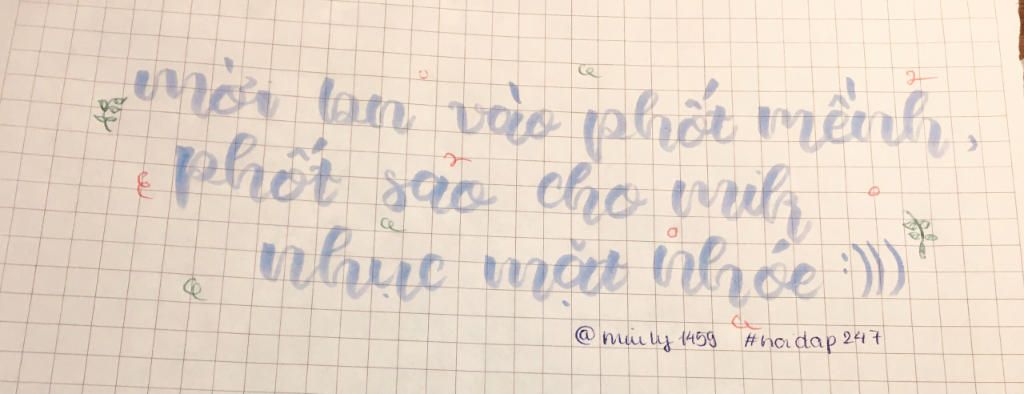 mời lan vào phốt mếnh,
phốt sao cho mik
nhục mặt nhóe :)))
@miuly1459 #hoidap247